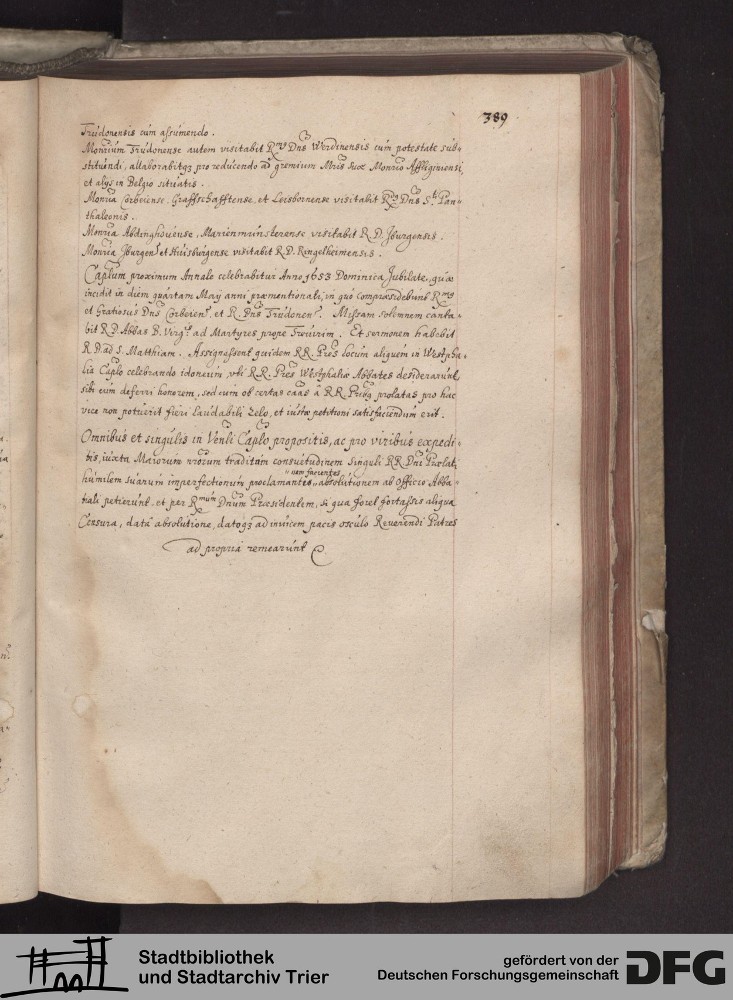 389
Trudonensis cum assumendo.
Monrium Trudonense autem visitabit Rmus Dns Werdinensis cum potestate sub-
stituendi, allaborabitqz pro reducendo ad gremium Mris suæ Monrio Affliginiensi,
et alijs in Belgio situatis.
Monria Corbeiense, Graffschafftense, et Leisbornense visitabit Rmus Dns S.ti Pan-
thaleonis.
Monria Abdinghouense, Marienmunsterense visitabit R.D. Jburgensis.
Monria Jburgense et Huisburgense visitabit R.D. Ringelheimensis.
Caplum proximum Annale celebrabitur Anno 1653 Dominica Jubilate, quæ
incidit in diem quartam Maij anni præmentionati, in quo compræsidebunt Rmus
et Gratiosus Dns Corbeien: et R. Dns Trudonen: Missam solemnem canta-
bit R.D. Abbas B. Virgs ad Martyres prope Treuirim. Et sermonem habebit
R.D. ad S. Matthiam. Assignassent quidem RR. Pres locum aliquem in Westpha-
lia Caplo celebrando idoneum, vti RR. Pres Westphaliæ Abbates desiderarunt
sibi eum deferri honorem, sed cum ob certas caas à RR. Prbq prolatas pro hac
vice non potuerit fieri laudabili zelo, et iustæ petitioni satisfaciendum erit.
Omnibus et singulis in Venli Caplo propositis, ac pro viribus expedi-
tis, iuxta Maiorum nrorum traditam consuetudinem singuli RR. Dni Prælati
humilem suarum imperfectionum proclamantes, absolutionem ab Officio Abba-
tiali petierunt, et per Rmum Dnum Præsidentem, si qua foret fortassis aliqua
Censura, data absolutione, datoqz ad inuicem pacis osculo Reuerendi Patres
ad propria remearunt
Stadtbibliothek
und Stadtarchiv Trier
gefördert von der
Deutschen Forschungsgemeinschaft
DFG